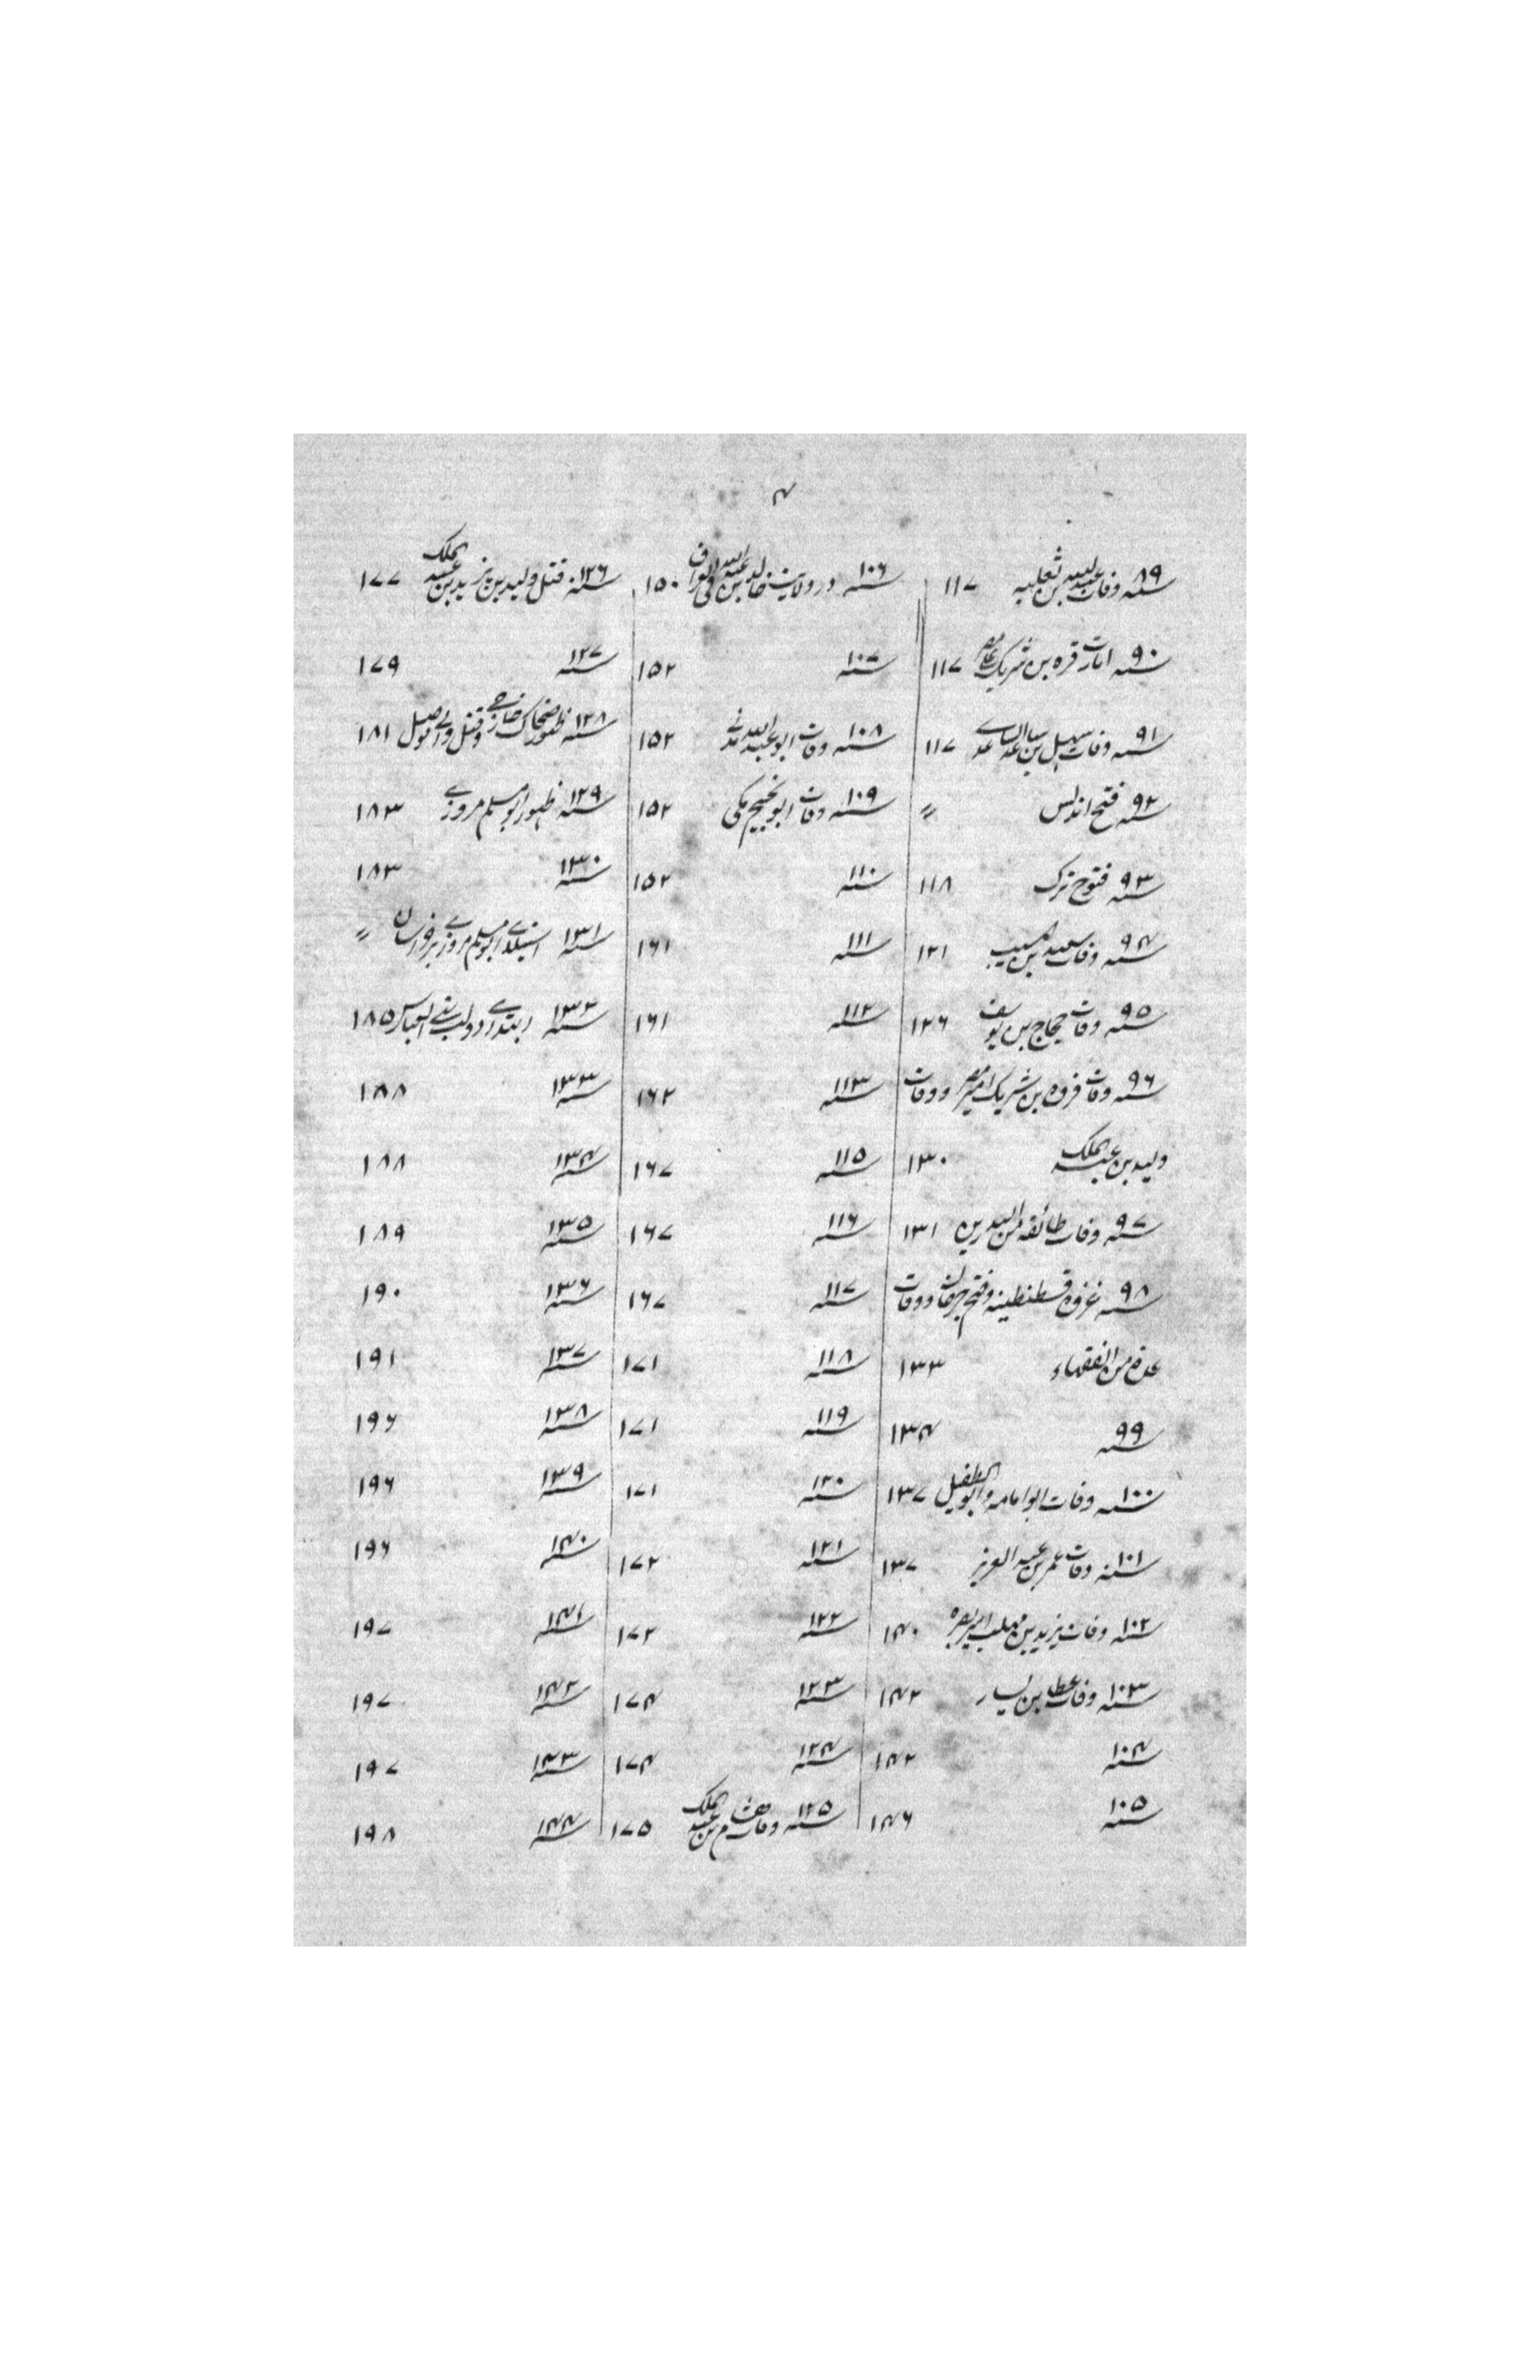 ۴
سنه ۸۹ وفات عبدالله بن ثعلبه ۱۱۷
سنه ۹۰ امارت قره بن شریک ۱۱۷
سنه ۹۱ وفات سهل بن ۱۱۷
سنه ۹۲ فتح اندلس 〃
سنه ۹۳ فتوح ترک ۱۱۸
سنه ۹۴ وفات سعید بن مسیب ۱۲۱
سنه ۹۵ وفات حجاج بن یوسف ۱۲۶
سنه ۹۶ وفات قره بن شریک امیر مصر و وفات
ولید بن عبدالملک ۱۳۰
سنه ۹۷ وفات طائفه من ۱۳۱
سنه ۹۸ غزوه قسطنطینه و فتح جرجان و وفات
عدة من الفقهاء ۱۳۳
سنه ۹۹ ۱۳۴
سنه ۱۰۰ وفات ابو امامه و ابو الطفیل ۱۳۷
سنه ۱۰۱ وفات عمر بن عبد العزیز ۱۳۷
سنه ۱۰۲ وفات یزید بن مهلب امیر بصره ۱۴۰
سنه ۱۰۳ وفات عطا بن یسار ۱۴۲
سنه ۱۰۴ ۱۴۲
سنه ۱۰۵ ۱۴۶
سنه ۱۰۶ در ولایت خالد بن عبدالله فی العراق ۱۵۰
سنه ۱۰۷ ۱۵۲
سنه ۱۰۸ وفات ابو عبدالله مدنے ۱۵۲
سنه ۱۰۹ وفات ابو نجیح مکی ۱۵۲
سنه ۱۱۰ ۱۵۲
سنه ۱۱۱ ۱۶۱
سنه ۱۱۲ ۱۶۱
سنه ۱۱۳ ۱۶۲
سنه ۱۱۵ ۱۶۷
سنه ۱۱۶ ۱۶۷
سنه ۱۱۷ ۱۶۷
سنه ۱۱۸ ۱۷۱
سنه ۱۱۹ ۱۷۱
سنه ۱۲۰ ۱۷۱
سنه ۱۲۱ ۱۷۲
سنه ۱۲۲ ۱۷۲
سنه ۱۲۳ ۱۷۴
سنه ۱۲۴ ۱۷۴
سنه ۱۲۵ وفات هشام بن عبدالملک ۱۷۵
سنه ۱۲۶ قتل ولید بن یزید بن عبدالملک ۱۷۷
سنه ۱۲۷ ۱۷۹
سنه ۱۲۸ ظهور ضحاک خارجے و قتل والے موصل ۱۸۱
سنه ۱۲۹ ظهور ابو مسلم مروزے ۱۸۳
سنه ۱۳۰ ۱۸۳
سنه ۱۳۱ استیلاے ابو مسلم مروزے بر خراسان 〃
سنه ۱۳۲ ابتداے دولت بنے العباس ۱۸۵
سنه ۱۳۳ ۱۸۸
سنه ۱۳۴ ۱۸۸
سنه ۱۳۵ ۱۸۹
سنه ۱۳۶ ۱۹۰
سنه ۱۳۷ ۱۹۱
سنه ۱۳۸ ۱۹۶
سنه ۱۳۹ ۱۹۶
سنه ۱۴۰ ۱۹۶
سنه ۱۴۱ ۱۹۷
سنه ۱۴۲ ۱۹۷
سنه ۱۴۳ ۱۹۷
سنه ۱۴۴ ۱۹۸